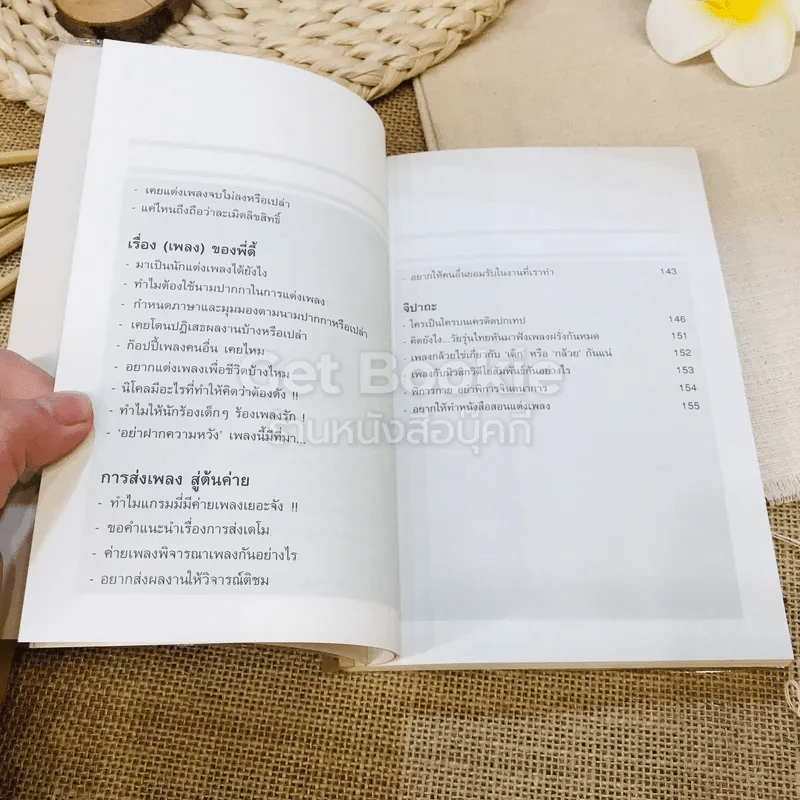 - เคยแต่งเพลงจบไม่ลงหรือเปล่า
- แค่ไหนถึงถือว่าละเมิดลิขสิทธิ์
เรื่อง (เพลง) ของพี่ดี้
- มาเป็นนักแต่งเพลงได้ยังไง
- ทำไมต้องใช้นามปากกาในการแต่งเพลง
- กำหนดภาษาและมุมมองตามนามปากกาหรือเปล่า
- เคยโดนปฏิเสธผลงานบ้างหรือเปล่า
- ก๊อปปี้เพลงคนอื่น เคยไหม
- อยากแต่งเพลงเพื่อชีวิตบ้างไหม
- นิโคลมีอะไรที่ทำให้คิดว่าต้องดัง !!
- ทำไมให้นักร้องเด็กๆ ร้องเพลงรัก !
- 'อย่าฝากความหวัง' เพลงนี้มีที่มา...
การส่งเพลง สู่ต้นค่าย
- ทำไมแกรมมี่มีค่ายเพลงเยอะจัง !!
- ขอคำแนะนำเรื่องการส่งเดโม
- ค่ายเพลงพิจารณาเพลงกันอย่างไร
- อยากส่งผลงานให้วิจารณ์ติชม
- อยากให้คนอื่นยอมรับในงานที่เราทำ 143
จิปาถะ
- ใครเป็นใครบนเครดิตปกเทป 146
- คิดยังไง...วัยรุ่นไทยหันมาฟังเพลงฝรั่งกันหมด 151
- เพลงกล้วยไข่เกี่ยวกับ 'เด็ก' หรือ 'กล้วย' กันแน่ 152
- เพลงกับมิวสิกวิดีโอสัมพันธ์กันอย่างไร 153
- พิการกาย อย่าพิการจินตนาการ 154
- อยากให้ทำหนังสือสอนแต่งเพลง 155
Get Bookie
ร้านหนังสือบุ๊คกี้